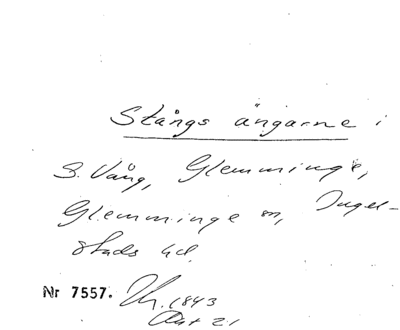 Stångs ängarne i
S. Vång, Glemminge,
Glemminge sn, Ingel-
stads hd.
Nr 7557.
1843
Akt 21